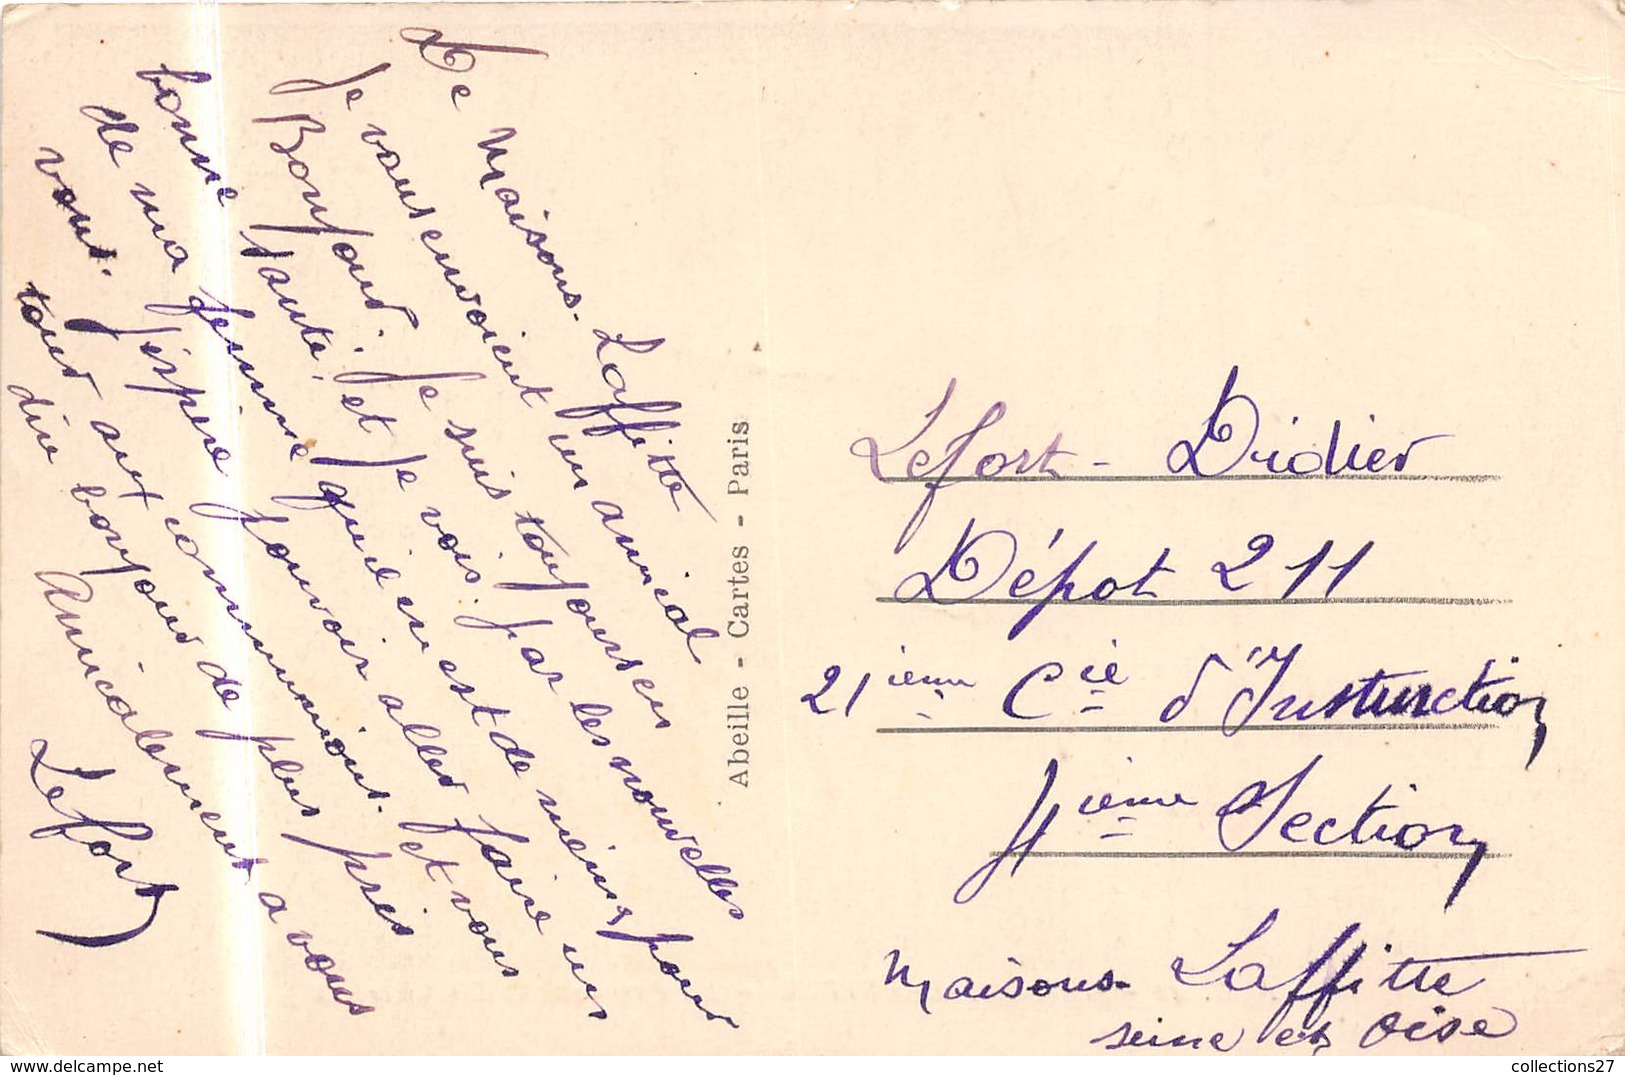 De Maisons-Laffitte
Je vous envoient un amical
Bonjour. Je suis toujours en
bonne santé, et je vois par les nouvelles
de ma femme qu'il en est de même pour
vous. J'éspère pouvoir aller faire un
tour aux communions. et vous
dire bonjour de plus près
Amicalement a vous
Lefort
Abeille - Cartes - Paris
Lefort - Didier
Dépot 211
21ième Cie d'Instruction
4ième Section
Maisons-Laffitte
seine et Oise
collections27